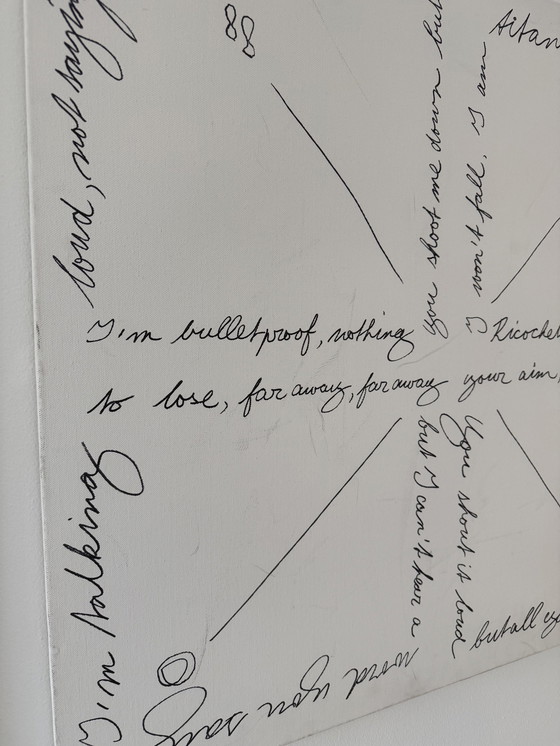 I'm talking
loud, not saying
88
I'm bulletproof, nothing
to lose, far away, far away
you shoot me down but
I won't fall, I am
Titan
Ricochet
your aim,
You shout it loud
but I can't hear a
word you say
but all